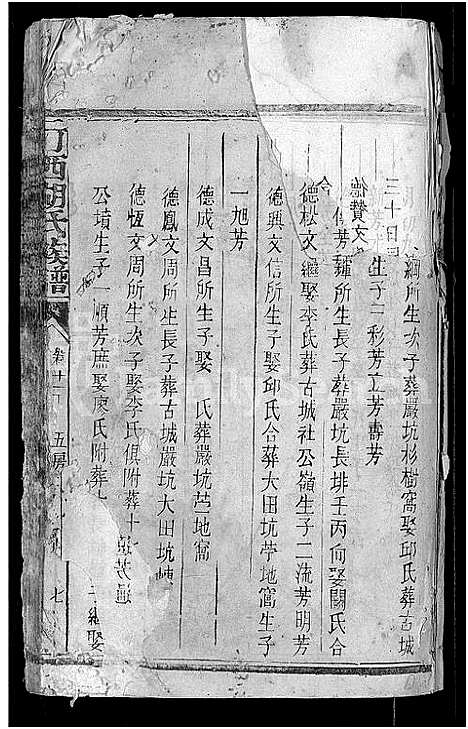 三十日
綱所生次子葬嚴坑杉樹窩娶邱氏葬古城
生子二彩芳立芳壽芳
德贊文
輝所生長子葬嚴坑長排壬丙向娶闕氏合
德松文 繼娶李氏葬古城社公嶺生子二流芳明芳
德興文信所生子娶邱氏合葬大田坑苧地窩生子
一旭芳
德成文昌所生子娶 氏葬嚴坑苧地窩
德鳳文周所生長子葬古城嚴坑大田坑
德恆文周所生次子娶李氏俱附葬十
芳通
公墳生子一順芳庶娶廖氏附葬
繼娶
西胡氏族譜
卷十二
五房
七